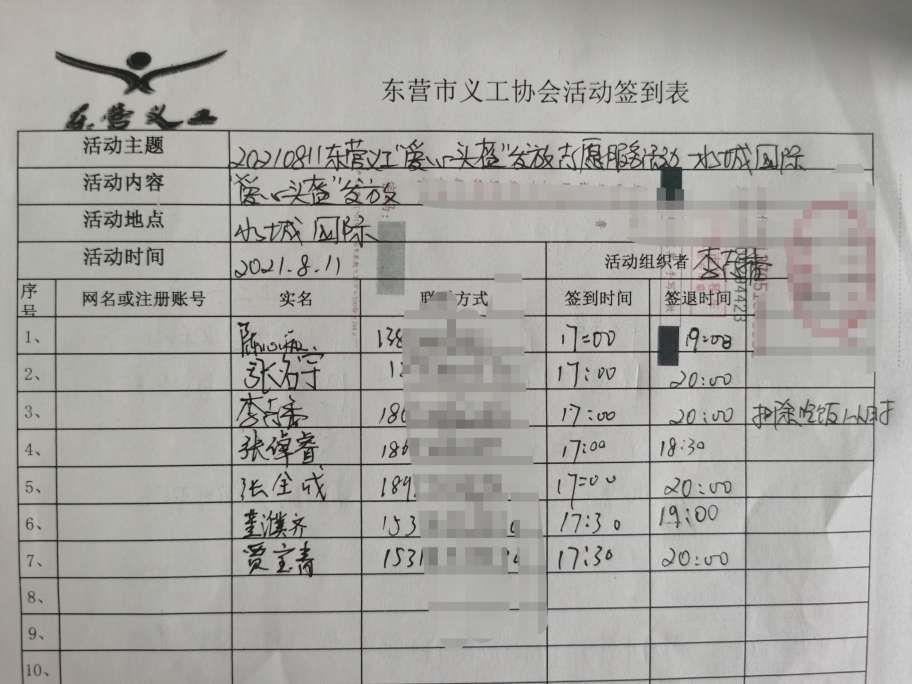 东营义工
东营市义工协会活动签到表
活动主题 20210811东营义工"爱心头盔"发放志愿服务活动 水城国际
活动内容 "爱心头盔"发放
活动地点 水城国际
活动时间 2021.8.11 活动组织者 李点香
序号 网名或注册账号 实名 联 方式 签到时间 签退时间
1、 138 17:00 19:00
2、 张名宇 17:00 20:00
3、 李点香 180 17:00 20:00 扣除吃饭1小时
4、 张倬睿 186 17:00 18:30
5、 张金成 189 17:00 20:00
6、 董濮齐 153 17:30 19:00
7、 贾宝青 1531 17:30 20:00
8、
9、
10、